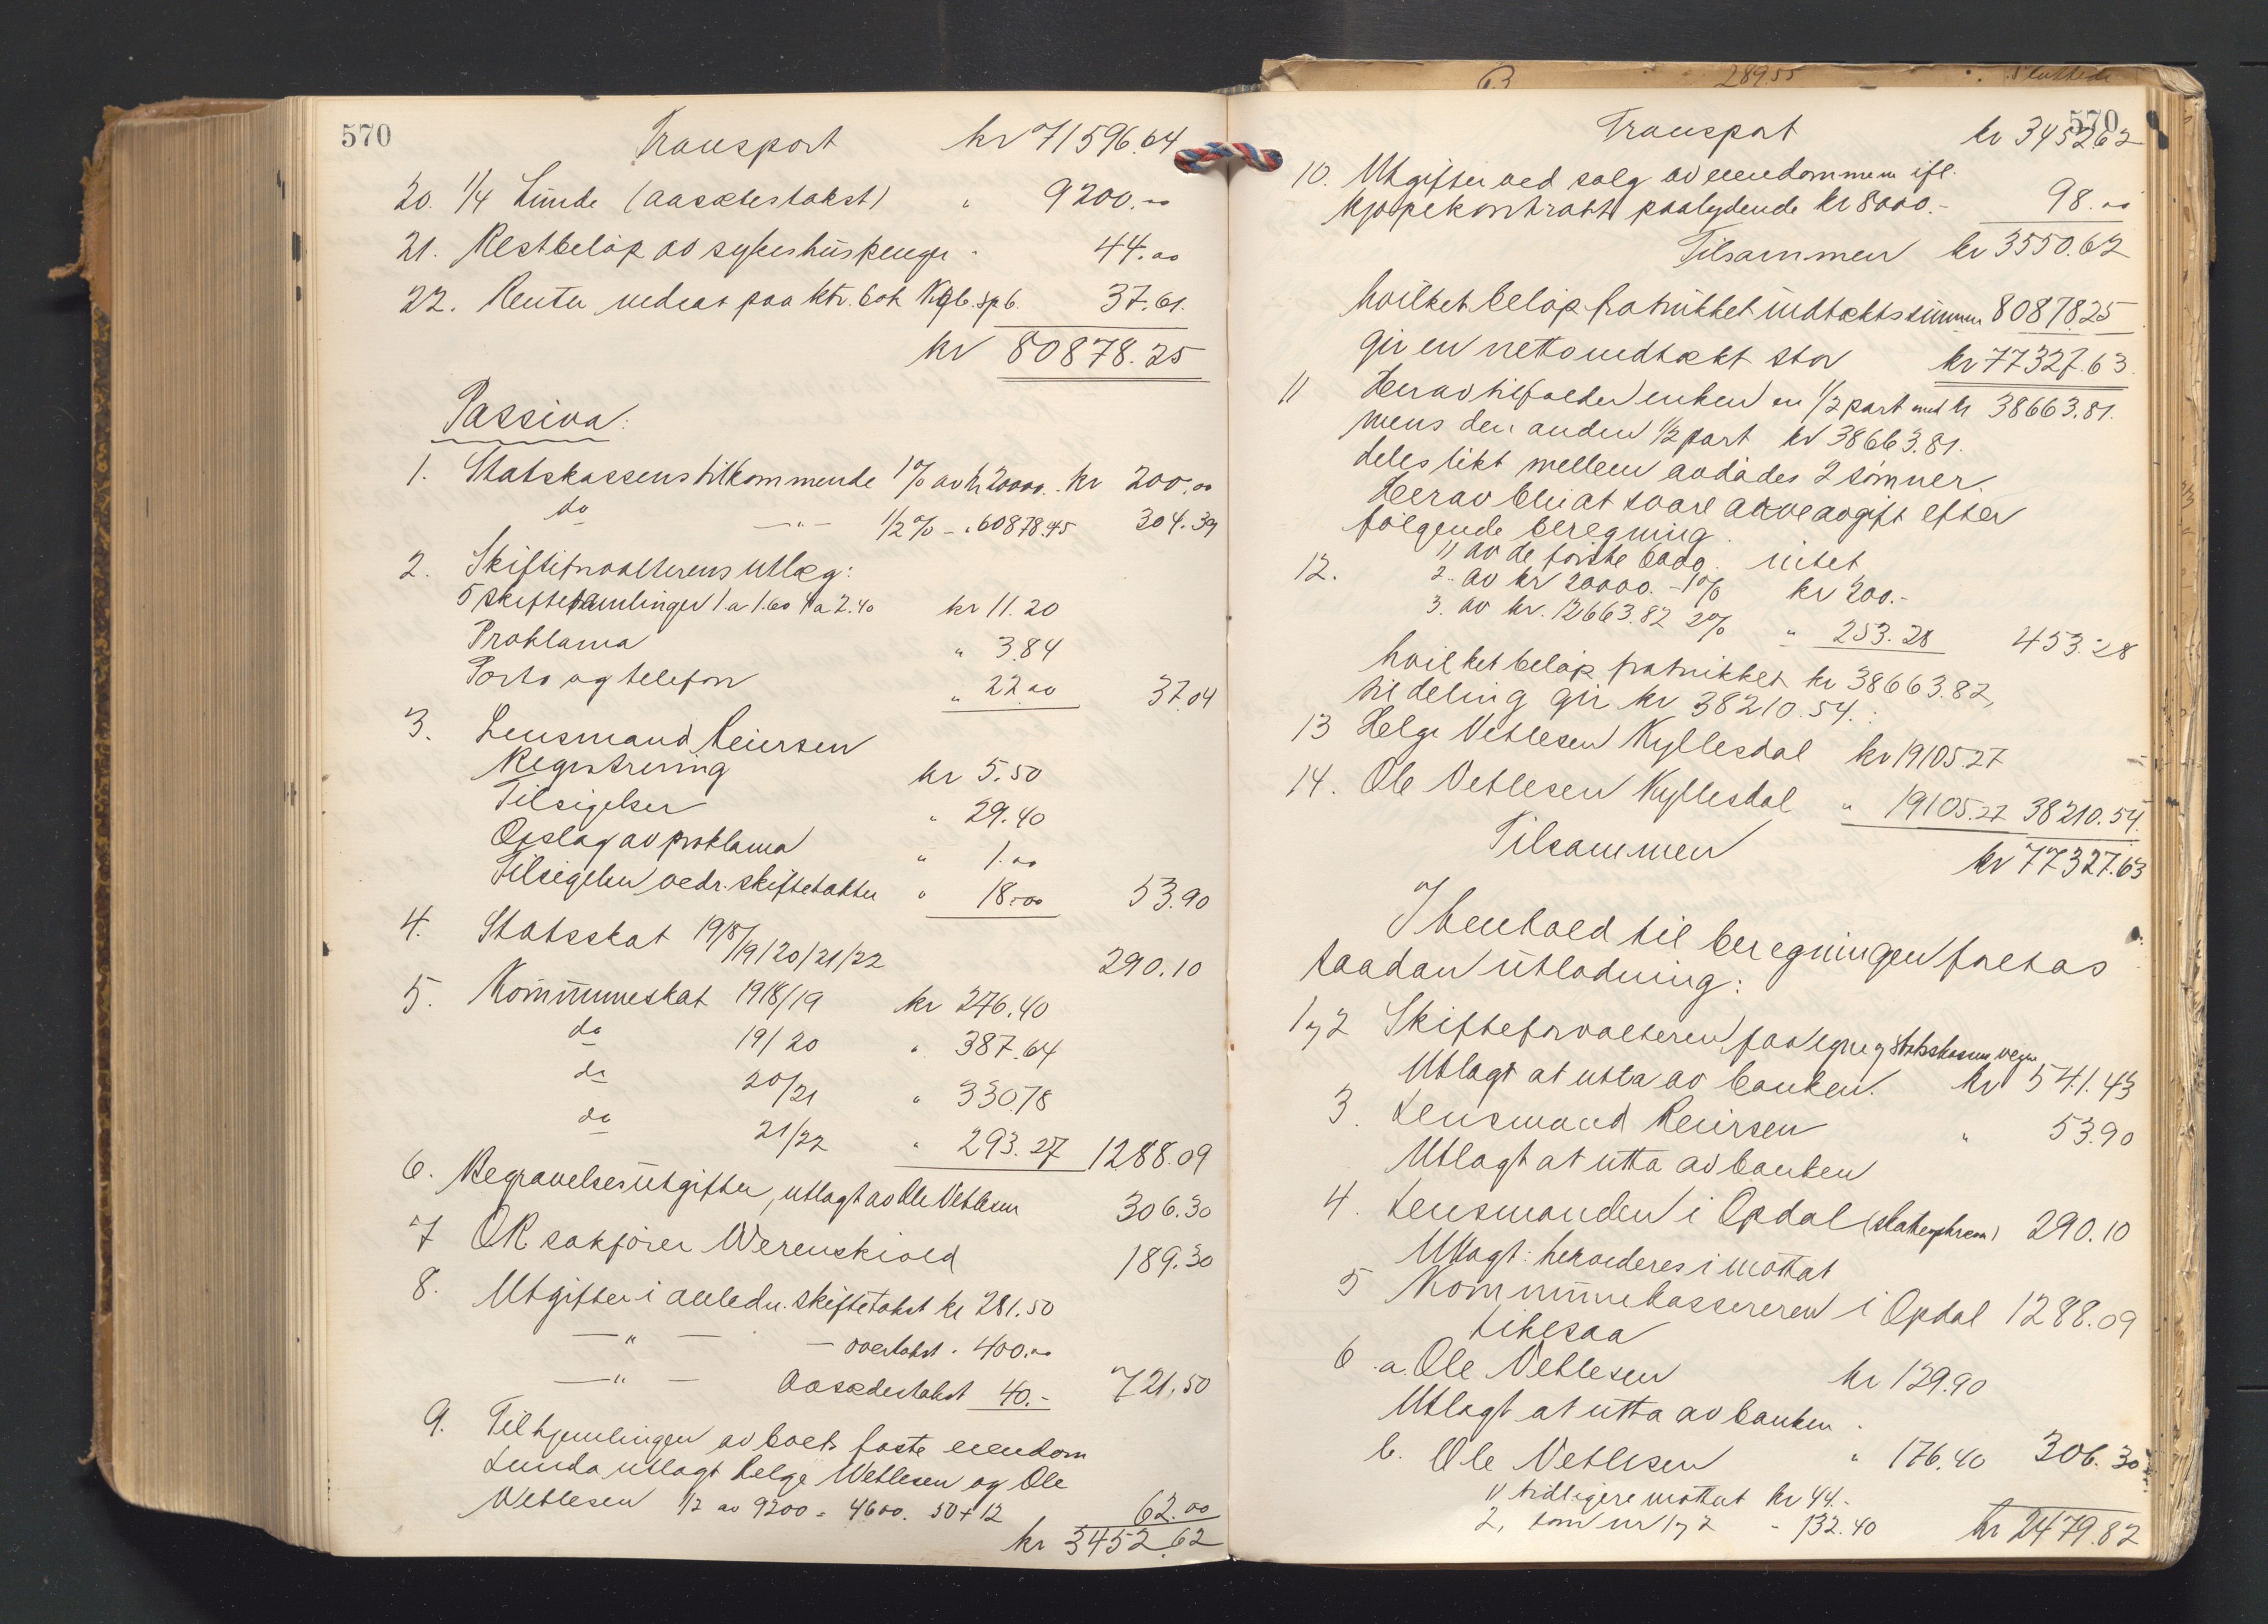 570
Transport kr 71596.64
20. 1/4 Lunde (aasætestakst) " 9200.00
21. Restbeløp av sykehuspenger " 44.00
22. Renter indsat paa ktr. bok Kgb. spb. 37.61.
kr 80878.25
Passiva:
1. Statskassens tilkommende 1% av kr 20000.- kr 200.00
do - " - 1/2% - " 60878.45 304.39
2. Skifteforvalterens utlæg:
5 skiftesamlinger 1 a 1.60 4 a 2.40 kr 11.20
Proklama " 3.84
Porto og telefon " 22.00 37.04
3. Lensmand Reiersen
Registrering kr 5.50
Tilsigelser " 29.40
Opslag av proklama " 1.00
Tilsigelser vedr. skiftetakster " 18.00 53.90
4. Statsskat 1918/19/20/21/22 290.10
5. Kommuneskat 1918/19 kr 276.40
do 19/20 " 387.64
do 20/21 " 330.78
do 21/22 " 293.27 1288.09
6. Begravelsesutgifter, utlagt av Ole Vetlesen 306.30
7 OR sakfører Werenskiold 189.30
8. Utgifter i anledn. skiftetakst kr 281.50
- " - - overtakst " 400.00
- " - Aasædestakst 40.- 721.50
9. Til hjemlingen av boets faste eiendom
Lunda utlagt Helge Vetlesen og Ole
Vetlesen 1/2 av 9200 = 4600. 50 + 12 62.00
kr 3452.62
63 289.55 Sluttede
570
Transport kr 3452.62
10. Utgifter ved salg av eiendommen ifl.
kjøpekontrakt paalydende kr 8000.- 98.00
Tilsammen kr 3550.62
hvilket beløp fratrukket indtægtssummen 80878.25
gir en nettoindtækt stor kr 77327.63.
11 Herav tilfalder enken en 1/2 part med kr 38663.81.
mens den anden 1/2 part kr 38663.81.
deles likt mellem avdødes 2 sønner.
Herav blir at svare arveavgift efter
følgende beregning.
12. 1) av de første 6000. intet
2. av kr 20000. - 1% kr 200.-
3. av kr. 12663.82 2% " 253.28 453.28
hvilket beløp fratrukket kr 38663.82,
til deling gir kr 38210.54.:
13 Helge Vetlesen Kyllesdal kr 19105.27
14. Ole Vetlesen Kyllesdal " 19105.27 38210.54.
Tilsammen kr 77327.63
I henhold til beregningen foretas
saadan utlodning:
1 og 2 Skifteforvalteren paa egne og statskassens vegne
Utlagt at utta av banken. kr 541.43
3. Lensmand Reiersen " 53.90
Utlagt at utta av banken
4. Lensmanden i Opdal 290.10
Utlagt: beholderes i mottat
5 Kommunekassereren i Opdal 1288.09
Likesaa
6 a. Ole Vetlesen kr 129.90
Utlagt at utta av banken.
b. Ole Vetlesen " 176.40 306.30
1) tidligere mottat kr 44.-
2, som nr 1 og 2 - 132.40 kr 2479.82